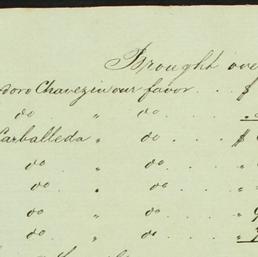 Brought ove
doro Chavez in our favor . . . $
do " do . . .
Carballeda " do . . $
do " do . . .
do " do . . .
do " do . . .
do " do . . .